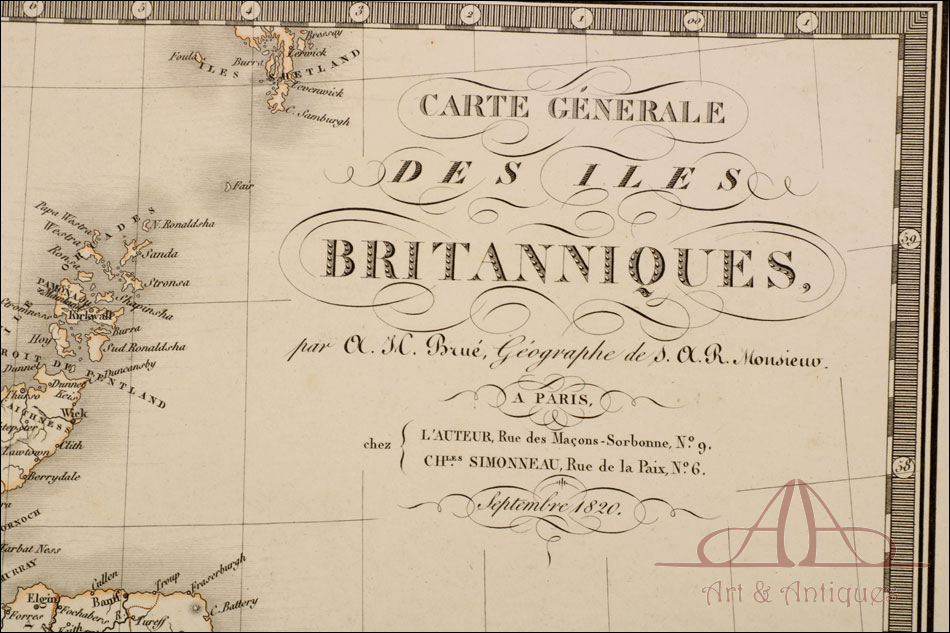 6
5
4
3
2
1
00
1
Bressay
Foula
Burra
Lerwick
ILES SHETLAND
Levenwick
C. Samburgh
CARTE GÉNERALE
DES ILES
BRITANNIQUES,
par A. H. Brué, Géographe de S. A. R. Monsieur.
A PARIS,
chez
L'AUTEUR, Rue des Maçons-Sorbonne, N.º 9.
CH.LES SIMONNEAU, Rue de la Paix, N.º 6.
Septembre 1820.
59
58
Fair
Papa Westra
N. Ronaldsha
Westra
ORCADES
Ronsa
Sanda
Stronsa
POMONA
Shapinsha
Stromness
Kirkwall
Burra
Hoy
Sud Ronaldsha
DROIT DE PENTLAND
Dunnet
Duncansby
Dunnet
Thurso
Keis
CAITHNESS
Wick
Clith
Lawtown
Berrydale
DORNOCH
Tarbat Ness
MURRAY
Cullen
Troup
Fraserburgh
Elgin
Banff
C. Battery
Forres
Fochabers
Keith
Tureff
Art & Antiques